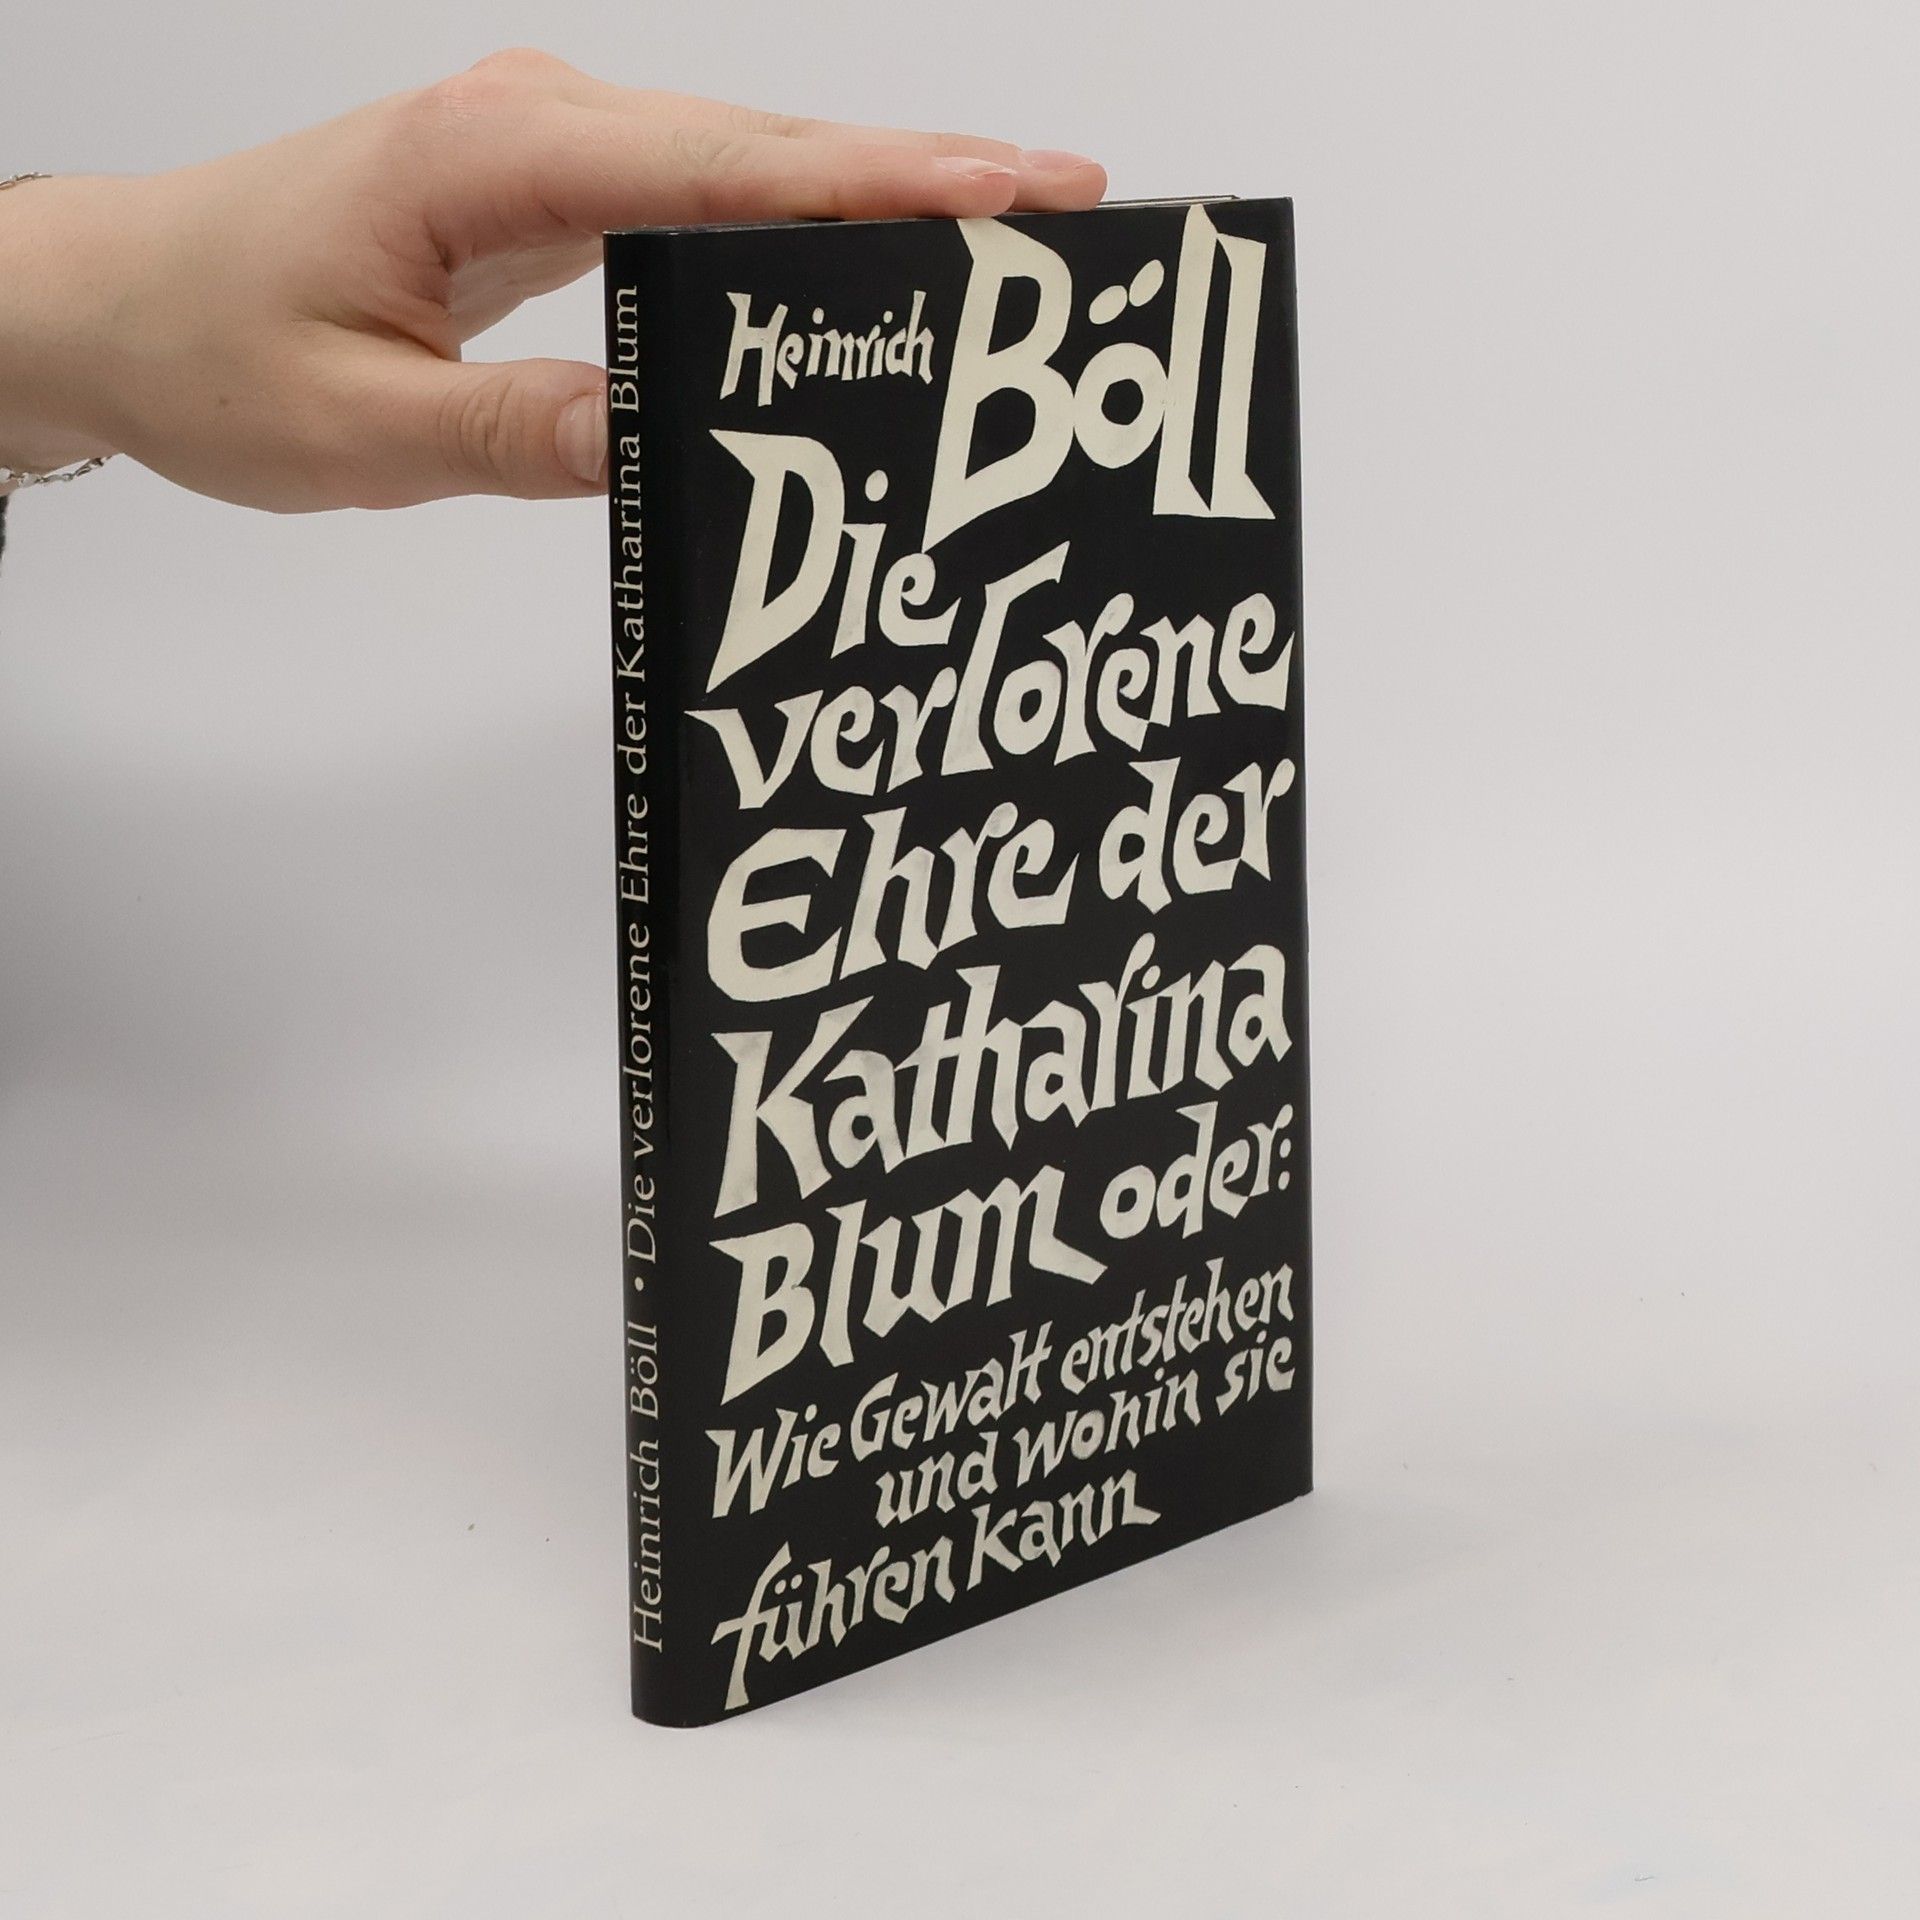 Heinrich Böll · Die verlorene Ehre der Katharina Blum
Heinrich Böll
Die
verlorene
Ehre der
Katharina
Blum oder:
Wie Gewalt entstehen
und wohin sie
führen kann